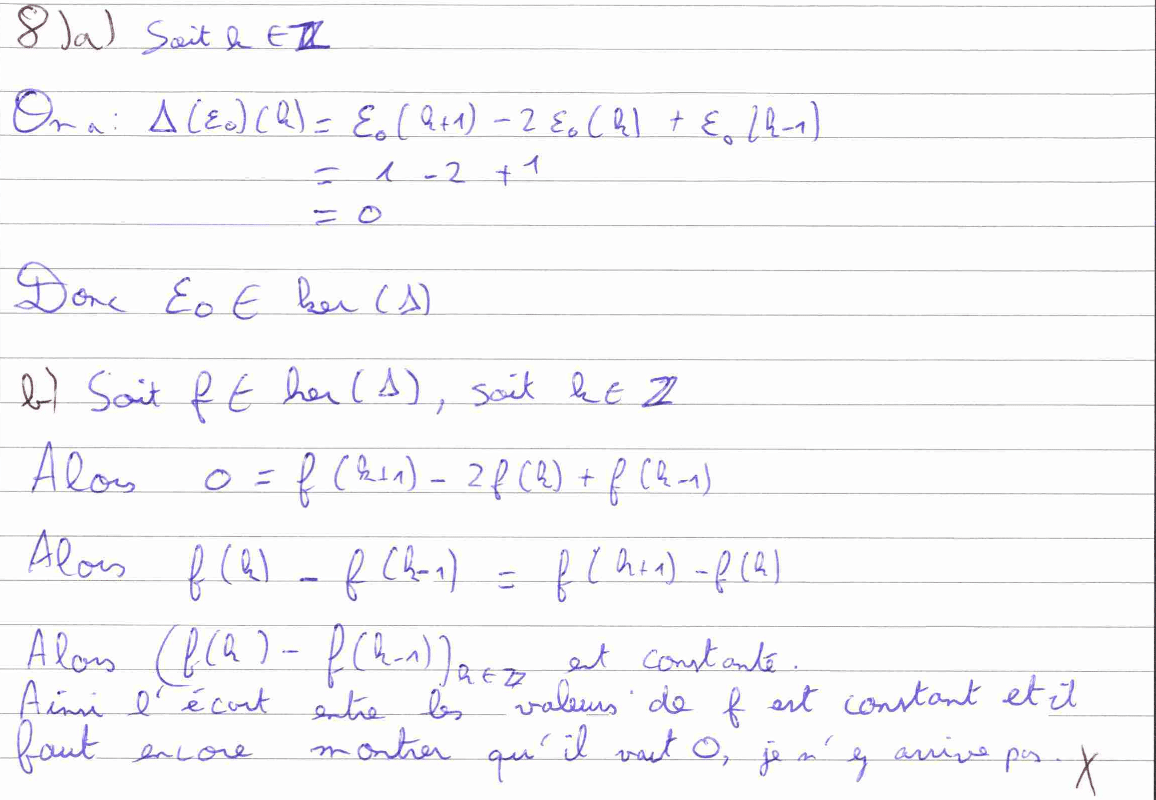 8)a) Soit k ∈ ℤ
On a : Δ(ε₀)(k) = ε₀(k+1) - 2 ε₀(k) + ε₀(k-1)
= 1 - 2 + 1
= 0
Donc ε₀ ∈ ker(Δ)
b) Soit f ∈ ker(Δ), soit k ∈ ℤ
Alors 0 = f(k+1) - 2f(k) + f(k-1)
Alors f(k) - f(k-1) = f(k+1) - f(k)
Alors (f(k) - f(k-1))ₖ∈ℤ est constante.
Ainsi l'écart entre les valeurs de f est constant et il
faut encore montrer qu'il vaut 0, je n'y arrive pas. X